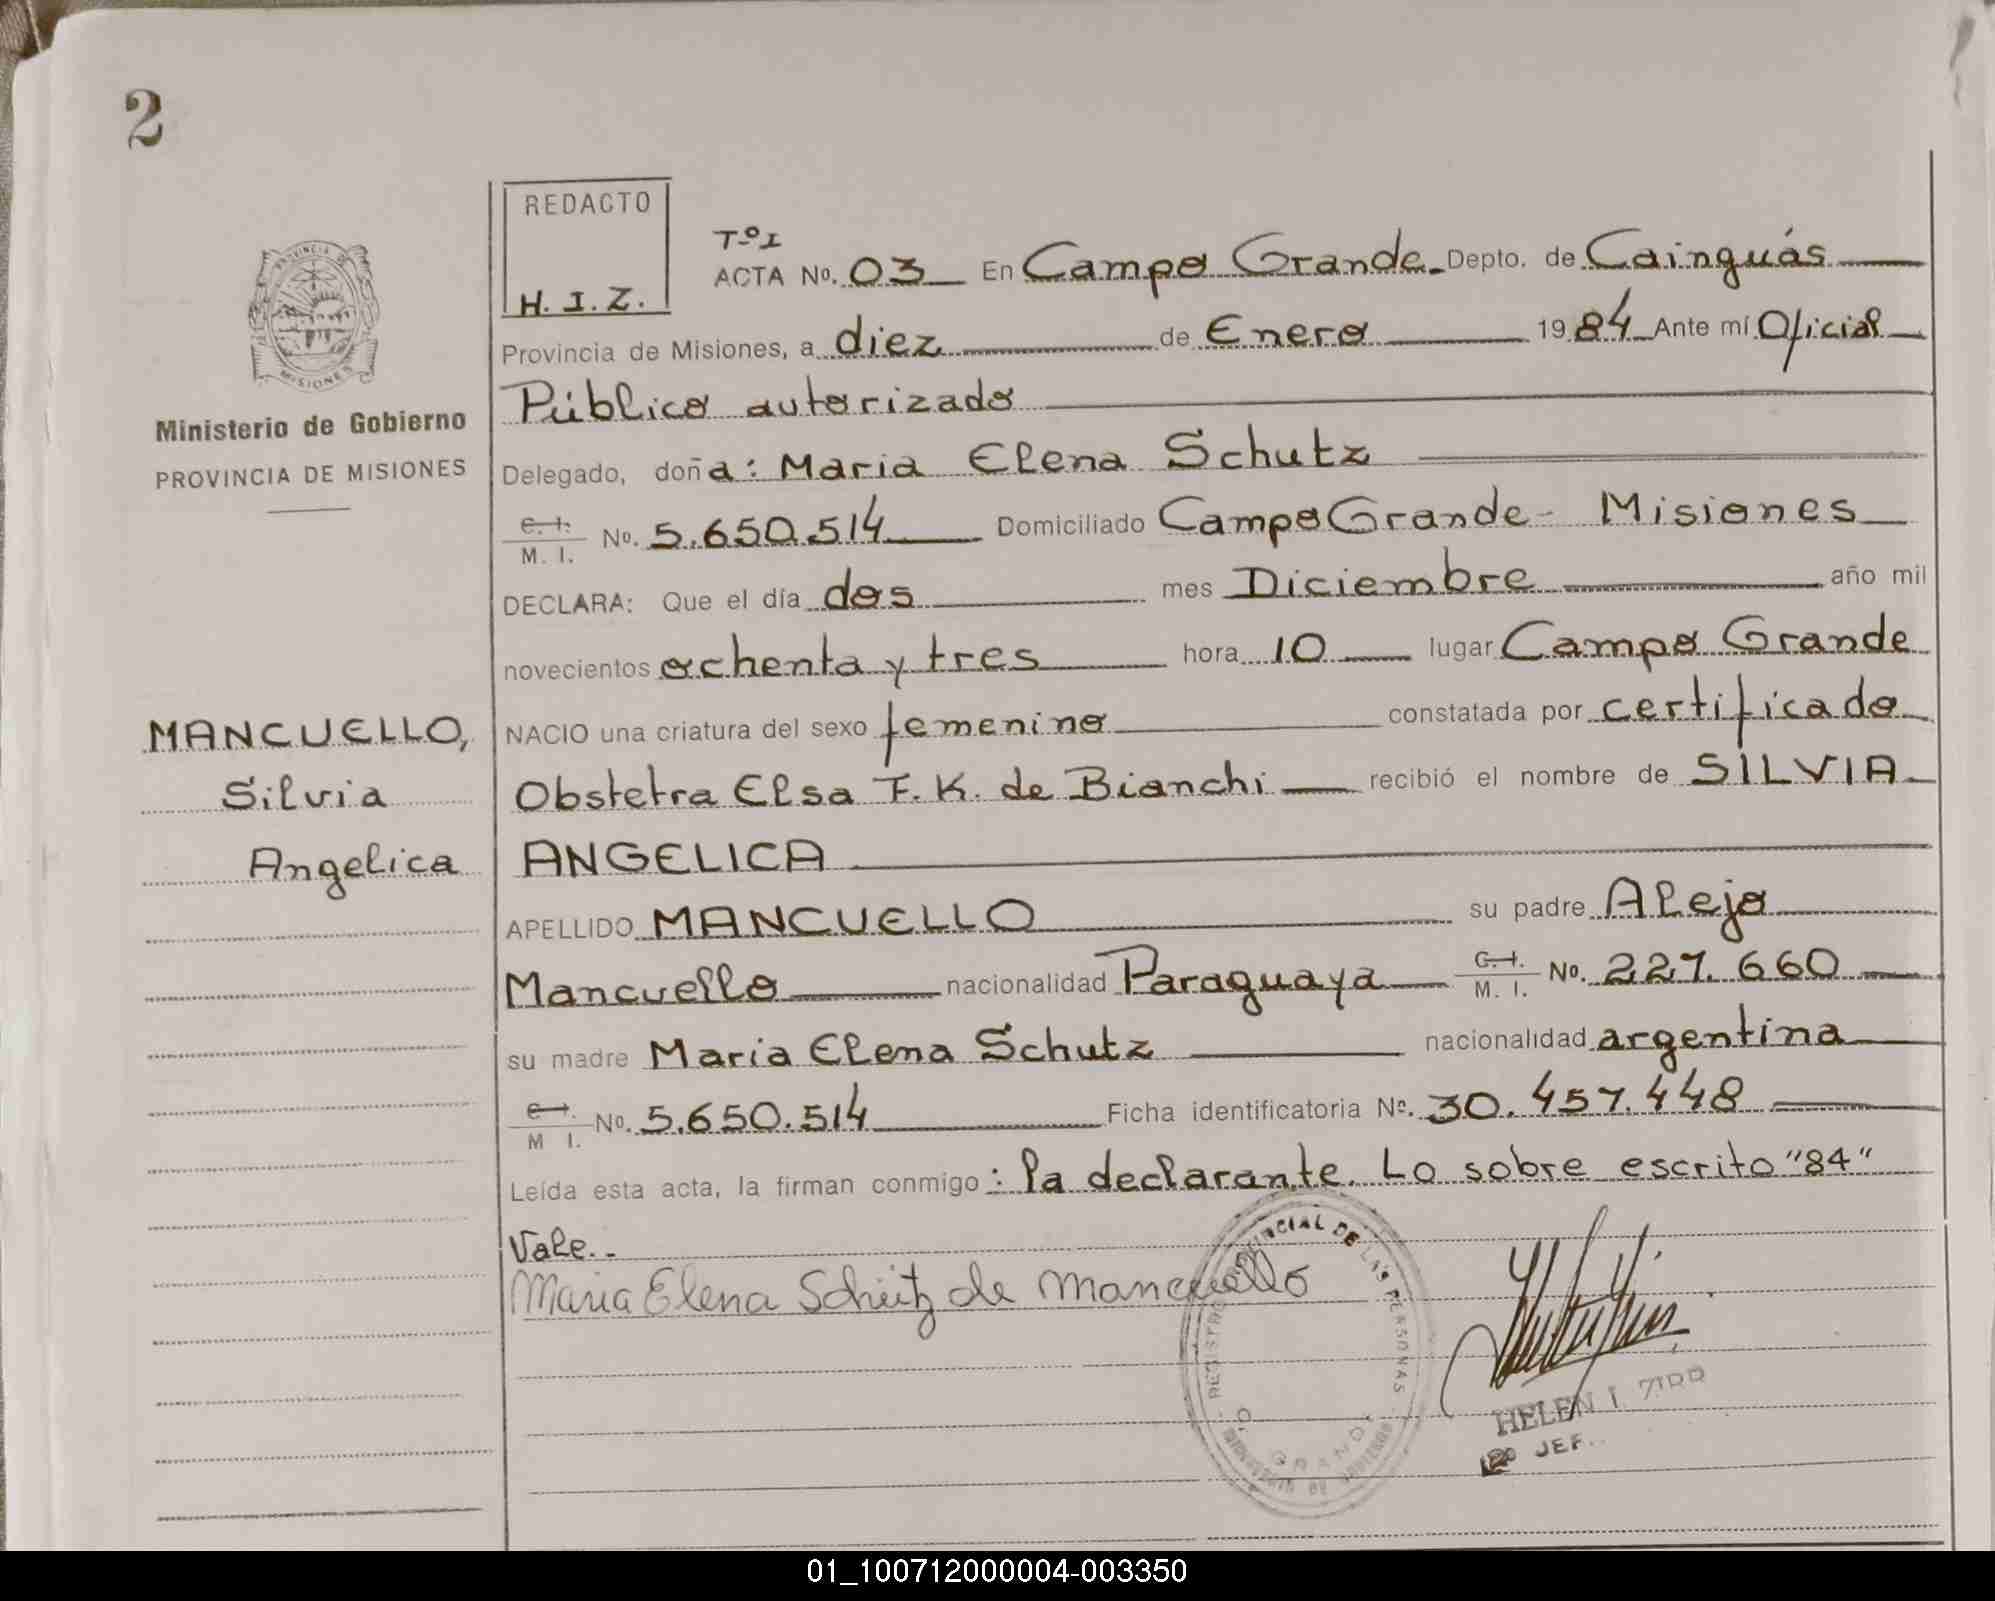 2
REDACTO
H. I. Z.
Tº I
ACTA Nº. 03 En Campo Grande Depto. de Cainguás
Provincia de Misiones, a diez de Enero 19 84 Ante mí Oficial
Público autorizado
Delegado, doña: Maria Elena Schutz
C. I. / M. I. No. 5.650.514 Domiciliado Campo Grande - Misiones
DECLARA: Que el día dos mes Diciembre año mil
novecientos ochenta y tres hora 10 lugar Campo Grande
NACIO una criatura del sexo femenino constatada por certificado
Obstetra Elsa F. K. de Bianchi recibió el nombre de SILVIA
ANGELICA
APELLIDO MANCUELLO su padre Alejo
Mancuello nacionalidad Paraguaya C. I. / M. I. No. 227.660
su madre Maria Elena Schutz nacionalidad argentina
C. I. / M I. No. 5.650.514 Ficha identificatoria Nº. 30.457.448
Leída esta acta, la firman conmigo: la declarante. Lo sobre escrito "84"
Vale..
Maria Elena Schütz de Mancuello
PROVINCIA DE MISIONES
Ministerio de Gobierno
PROVINCIA DE MISIONES
MANCUELLO,
Silvia
Angelica
REGISTRO PROVINCIAL DE LAS PERSONAS
GRANDE
HELEN I.
JEF.
01_100712000004-003350